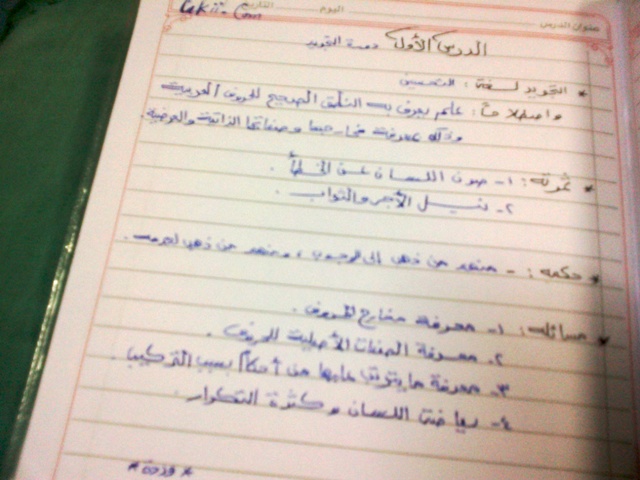 عنوان الدرس اليوم التاريخ
الدرس الأول
* التجويد لغة : التحسين
واصطلاحاً : علم يعرف به النطق الصحيح للحروف العربية
وذلك بمعرفة مخارجها وصفاتها الذاتية والعرضية.
* ثمرته : ١- صون اللسان عن الخطأ.
٢- نيل الأجر والثواب.
* حكمه : - منهم من ذهب إلى الوجوب ، ومنهم من ذهب
* مسائله : ١- معرفة مخارج الحروف.
٢- معرفة الصفات الأصلية للحروف.
٣- معرفة ما يترتب عليها من أحكام بسبب التركيب.
٤- رياضة اللسان وكثرة التكرار.